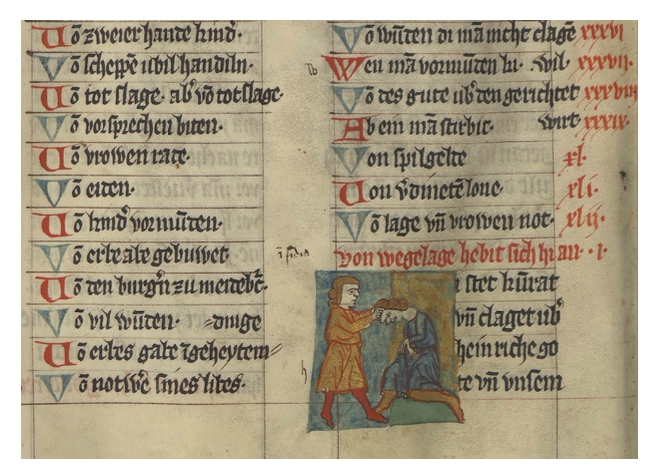 Vō zweier hande kind᷎.
Vō scheppē ubil handiln.
Vō tot slage. ab᷎ vō tot slage.
Vō vorsprechen biten.
Vō vrowen rate.
Vō eiden.
Vō kind᷎ vormūden.
Vō erbe ale gebuwet
Vō den burg᷎n zu meideb᷎c.
Vō vil wūden. dinge
Vō erbes gabe īgeheytem
Vō notw᷎e sines libes.
Vō wūden di mā nicht clagē xxxvi
Wen mā vormūden ku. wil. xxxvii.
Vō des gute ub᷎ den gerichtet xxxviii
Ab ein mā stirbit. wirt xxxix.
Von spilgelte xl.
Von v᷎dinetē lone xli.
Vō lage vn̄ vrowen not. xlii.
Von wegelage hebit sich hi an. i.
stet kūrat
vn̄ claget ub᷎
hein riche go
te vn̄ vnsem